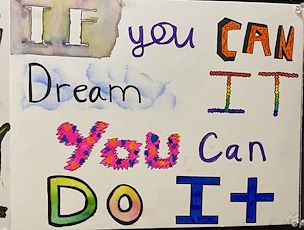 IF you CAN
Dream IT
YOU Can
DO It